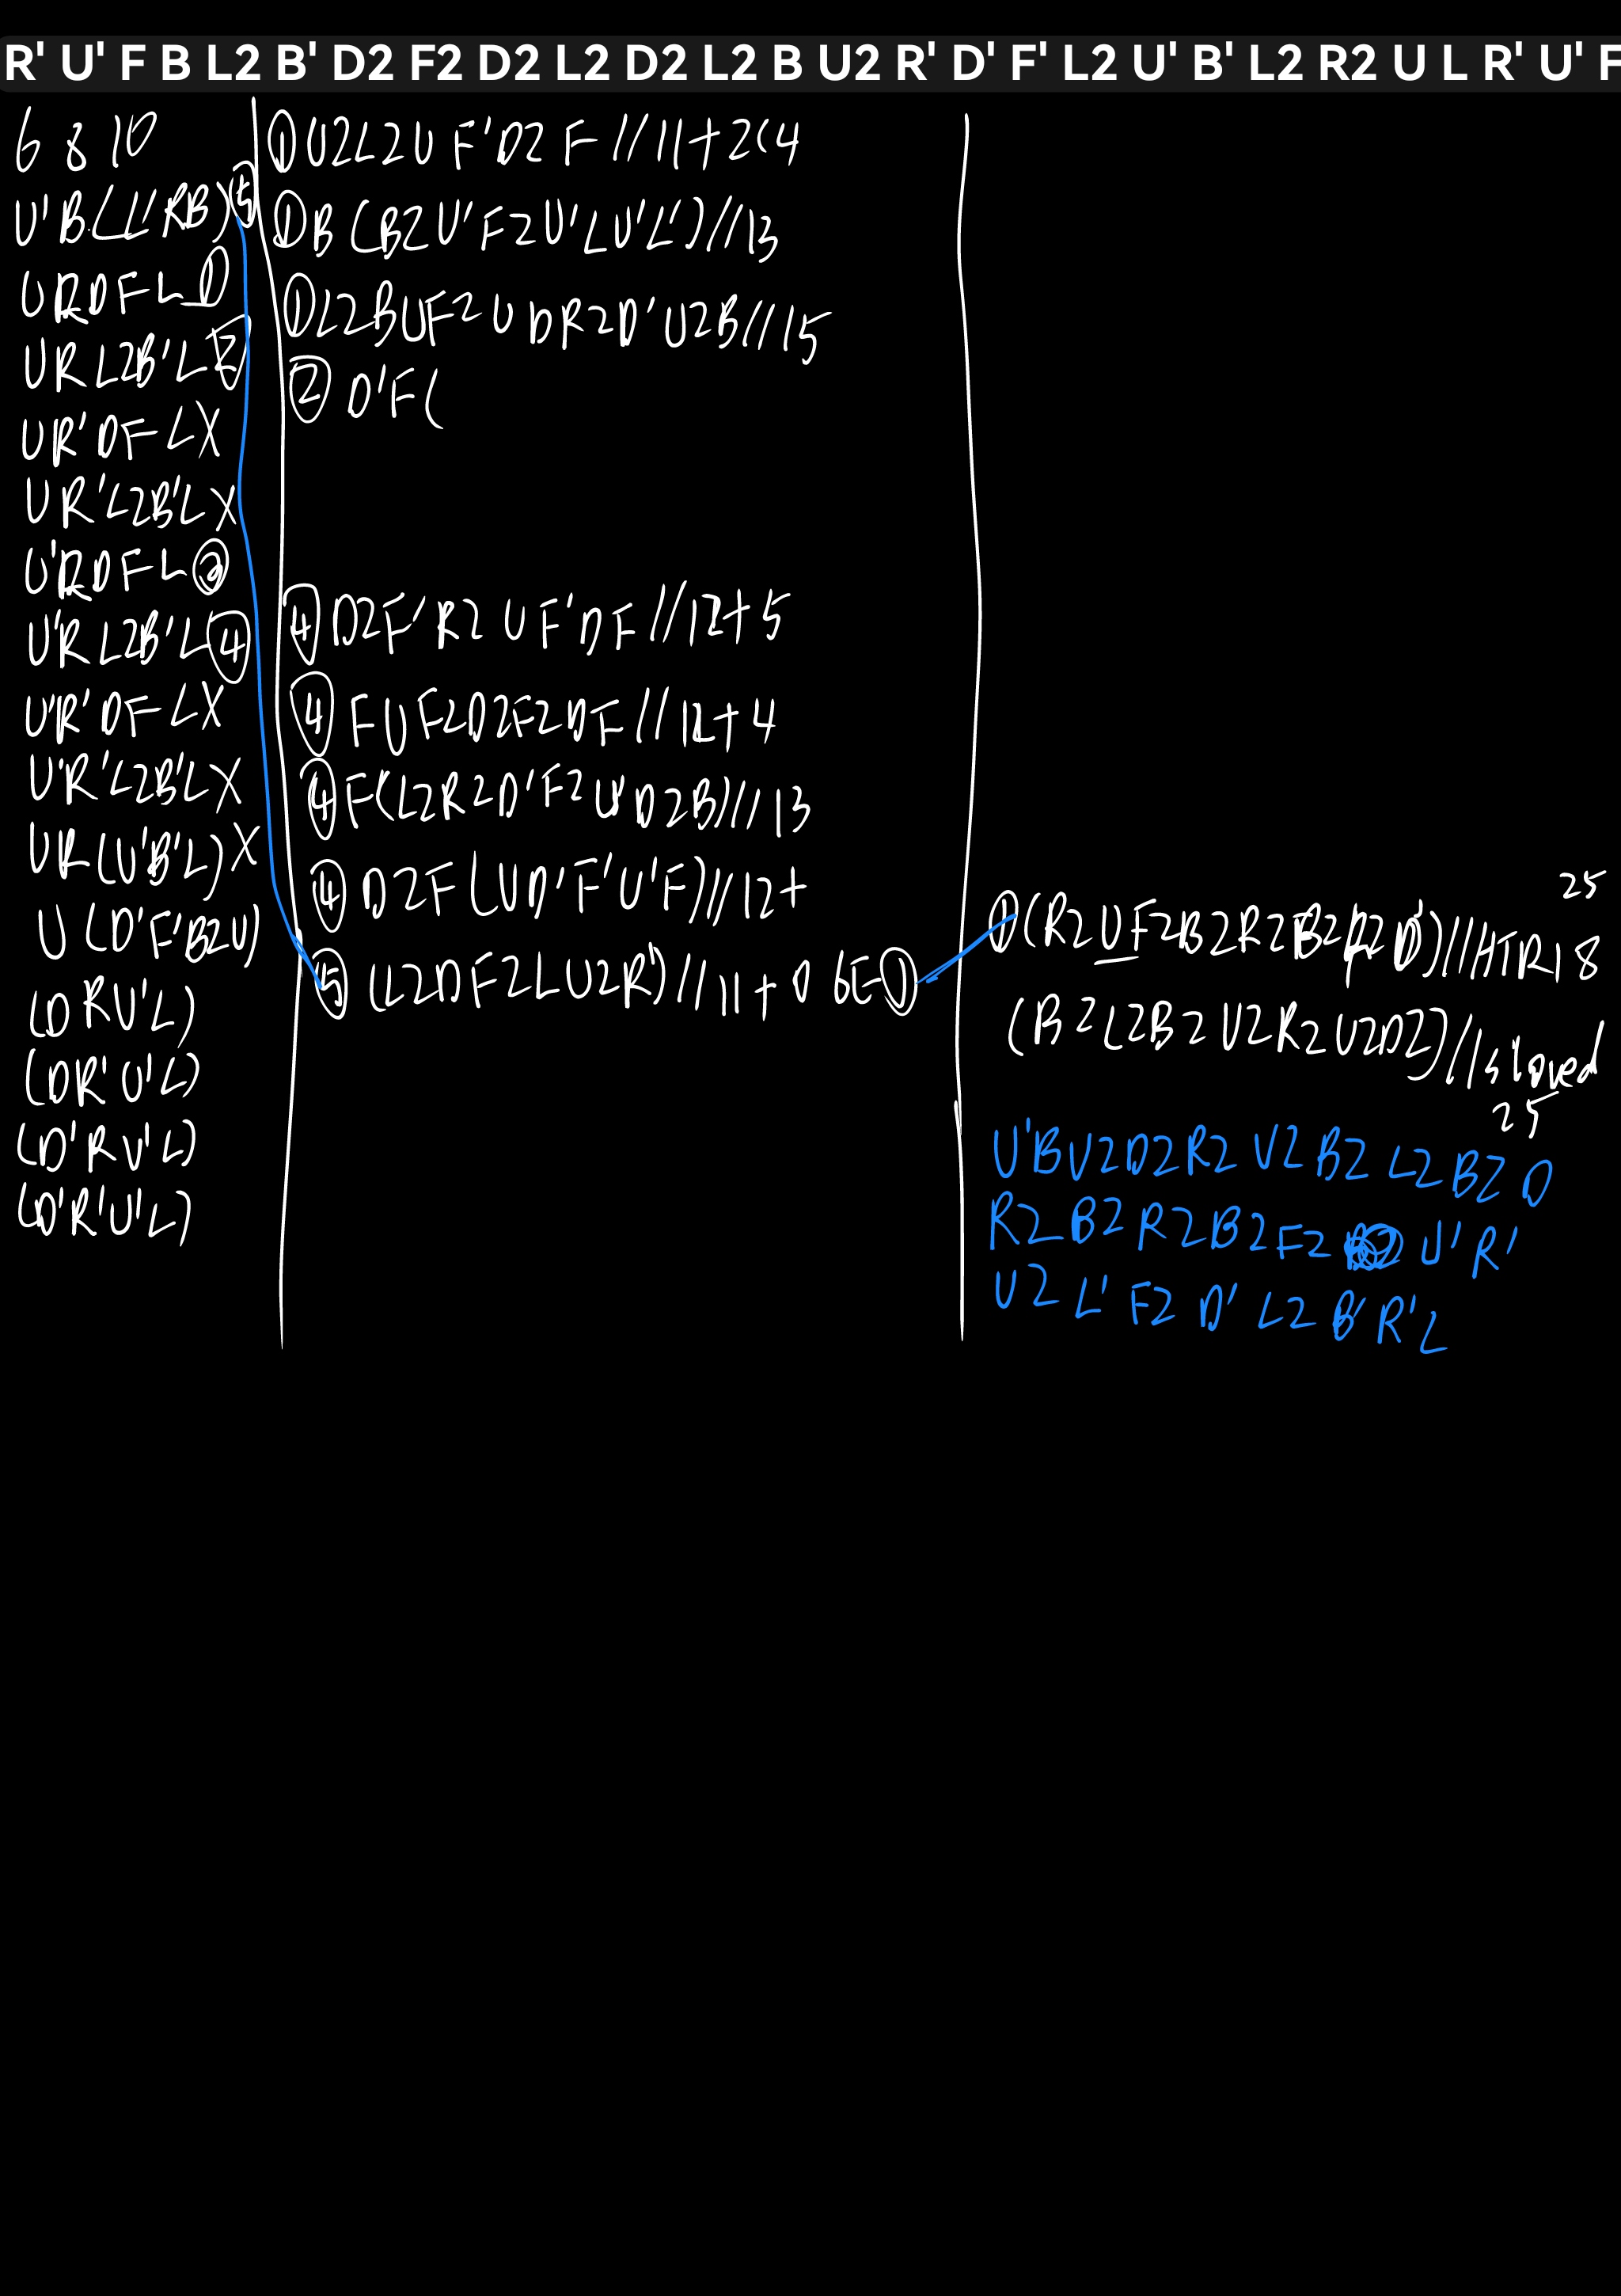 R' U' F B L2 B' D2 F2 D2 L2 D2 L2 B U2 R' D' F' L2 U' B' L2 R2 U L R' U' F
6 8 10
U'B(L'RB)⑤
URDFL①
URL2B'L②
UR'DFLX
UR'L2B'LX
U'RDFL③
U'RL2B'L④
U'R'DFLX
U'R'L2B'LX
UR(U'B'L)X
U(D'F'B2U)
(DRU'L)
(DR'U'L)
(D'RU'L)
(D'R'U'L)
①U2L2UF'D2F//11+2(4
①B(B2U'F2U'LU'L')//13
①L2BUF2UDR2D'U2B//15
②D'F(
④D2F'R2UF'DF//12+5
④FUF2D2F2DF//12+4
④F(L2R2D'F2U'D2B)//13
④D2F(UD'F'U'F)//12+
⑤(L2DF2LU2R')//11+0 6E①
25
①(R2UF2B2R2B2R2D')//HTR18
(B2L2B2U2R2U2D2)//sloved
25
U'BU2D2R2U2B2L2B2D
R2B2R2B2F2U'R'
U2L'F2D'L2B'R'L